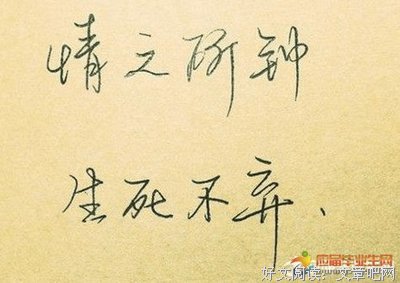 情之所钟
生死不弃、
应届毕业生网
好文阅读：文章吧网